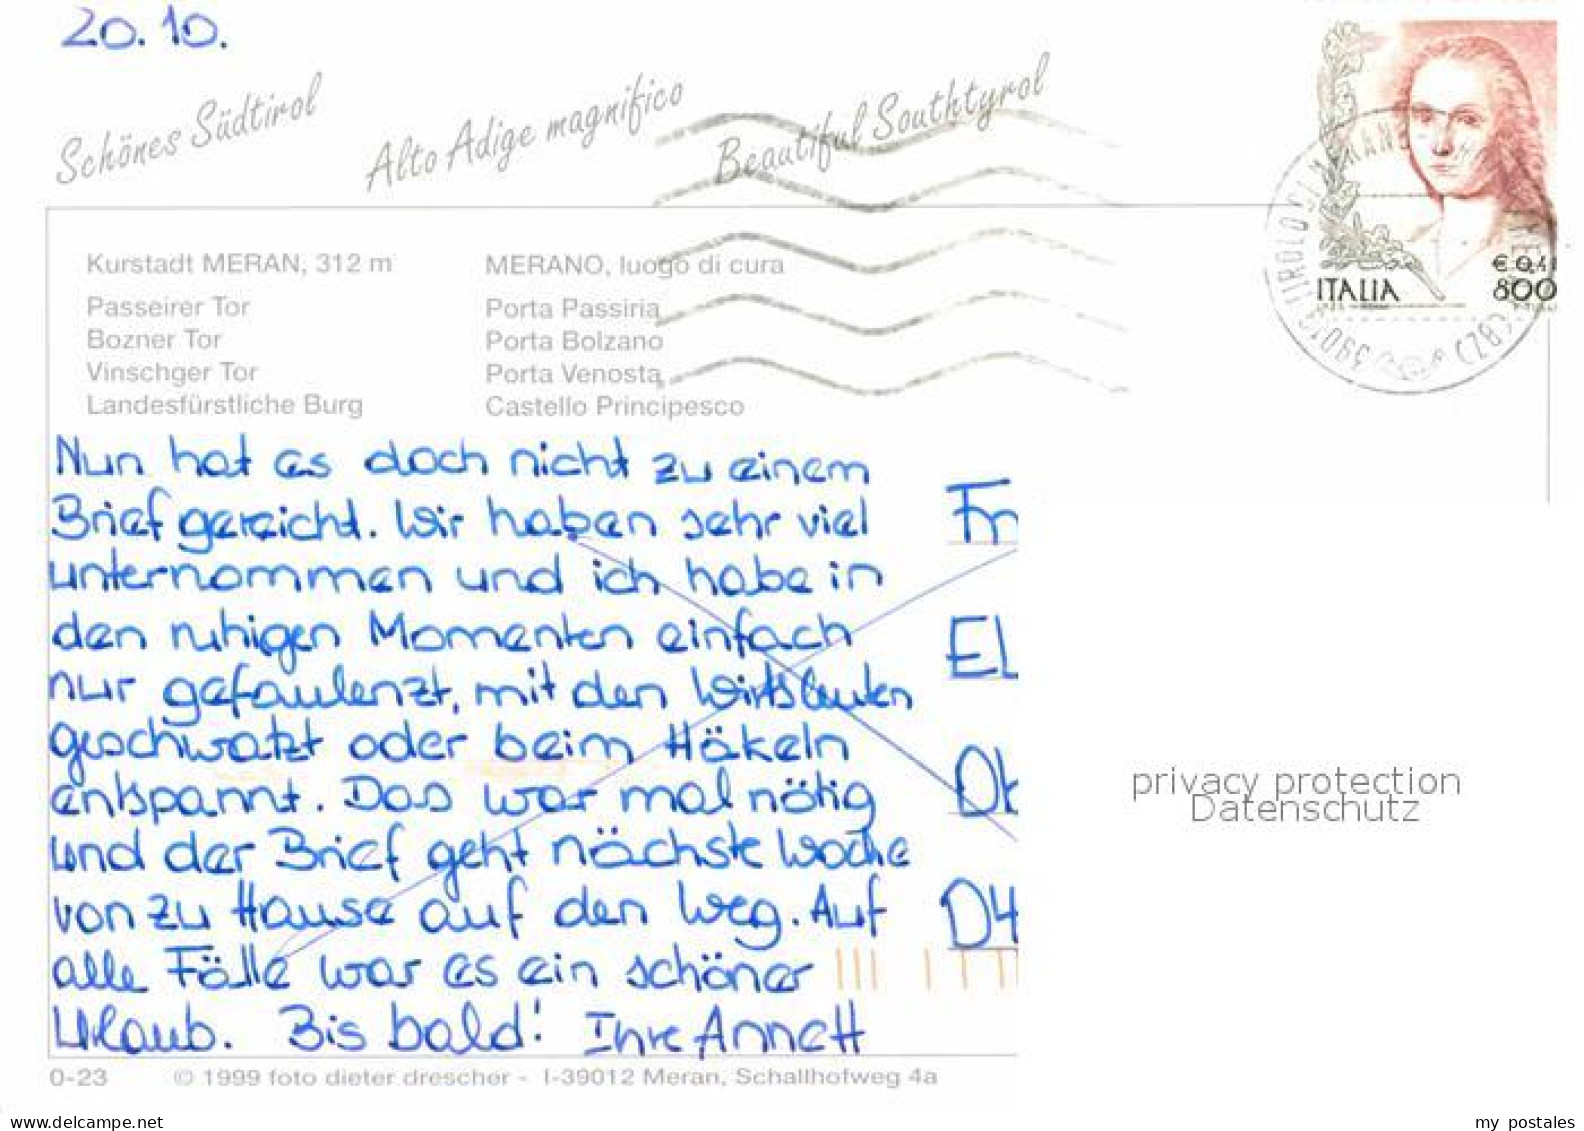 20.10.
Schönes Südtirol
Alto Adige magnifico
Beautiful Southtyrol
€ 0,41
ITALIA 800
Kurstadt MERAN, 312 m
Passeirer Tor
Bozner Tor
Vinschger Tor
Landesfürstliche Burg
MERANO, luogo di cura
Porta Passiria
Porta Bolzano
Porta Venosta
Castello Principesco
Nun hat es doch nicht zu einem
Brief gereicht. Wir haben sehr viel
unternommen und ich habe in
den ruhigen Momenten einfach
nur gefaulenzt, mit den Wirtsleuten
geschwatzt oder beim Häkeln
entspannt. Das war mal nötig
und der Brief geht nächste Woche
von zu Hause auf den Weg. Auf
alle Fälle war es ein schöner
Urlaub. Bis bald! Ihre Annett
Fr
EL
D4
privacy protection
Datenschutz
0-23 © 1999 foto dieter drescher - I-39012 Meran, Schallhofweg 4a
www.delcampe.net
my_postales